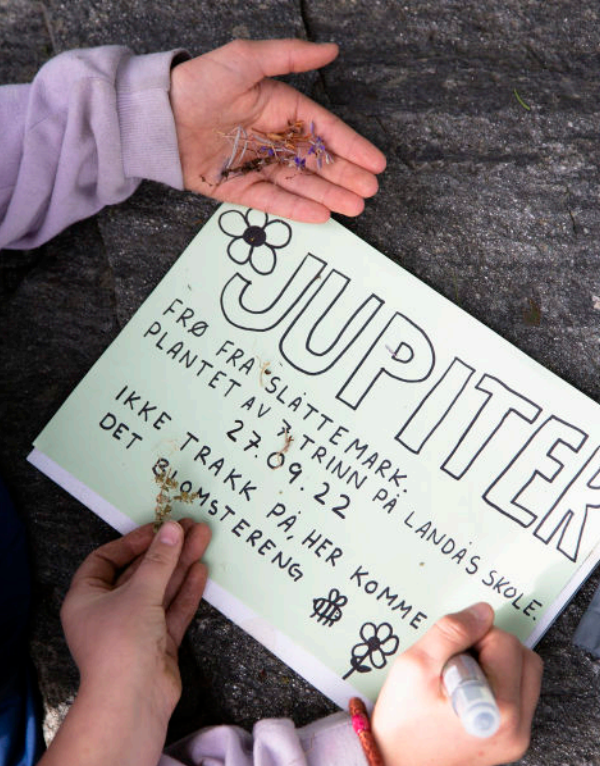 JUPITER
FRØ FRA SLÅTTEMARK.
PLANTET AV 7. TRINN PÅ LANDÅS SKOLE.
27.09.22
IKKE TRAKK PÅ, HER KOMME
DET BLOMSTERENG